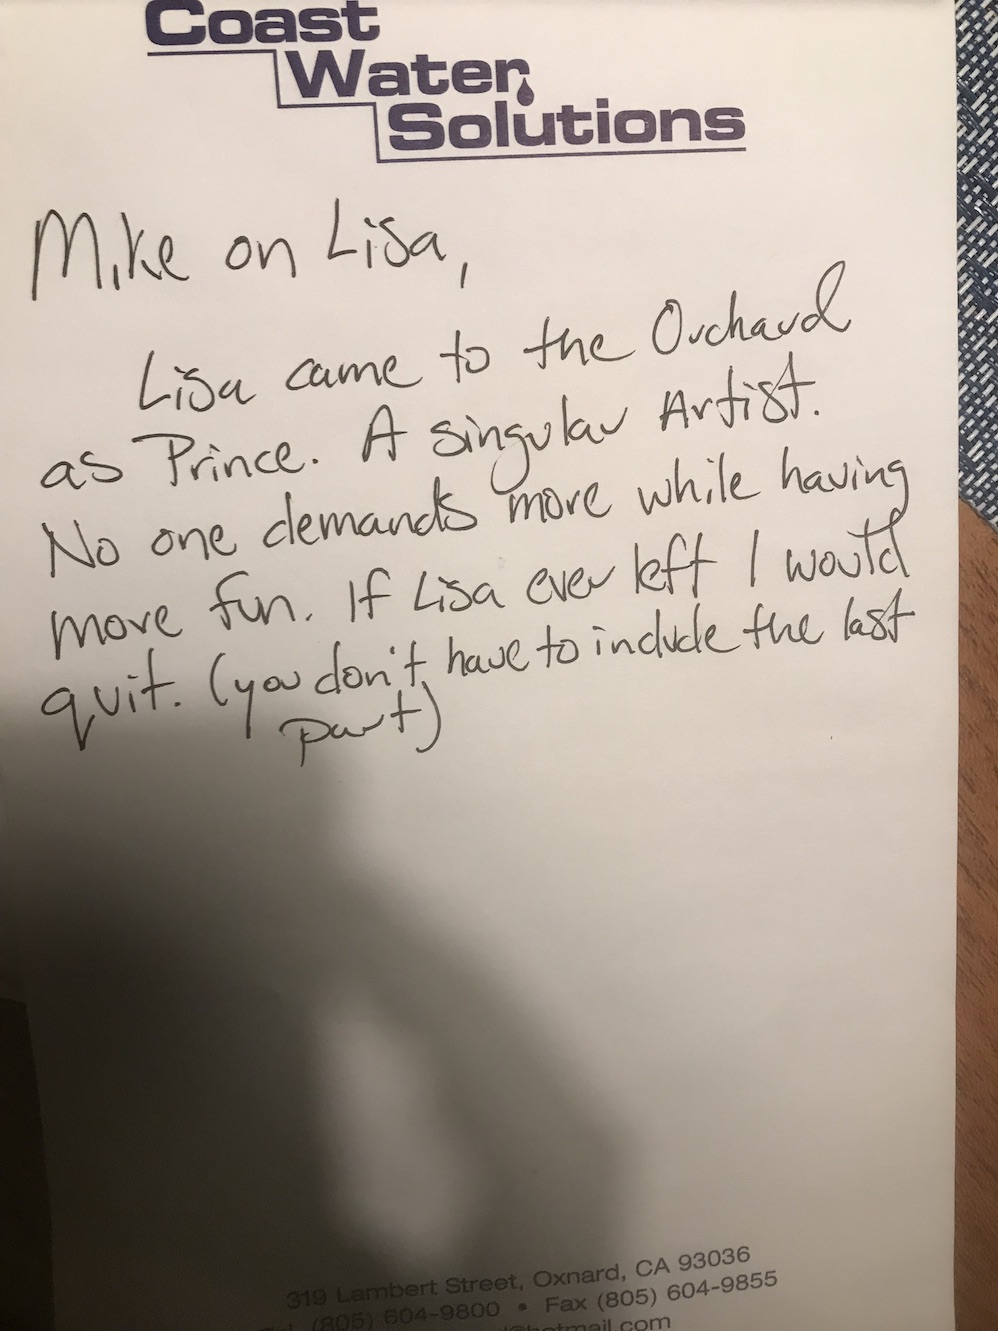 Coast
Water
Solutions
Mike on Lisa,
Lisa came to the Orchard
as Prince. A singular Artist.
No one demands more while having
more fun. If Lisa ever left I would
quit. (you don't have to include the last
part)
319 Lambert Street, Oxnard, CA 93036
(805) 604-9800 • Fax (805) 604-9855
@hotmail.com